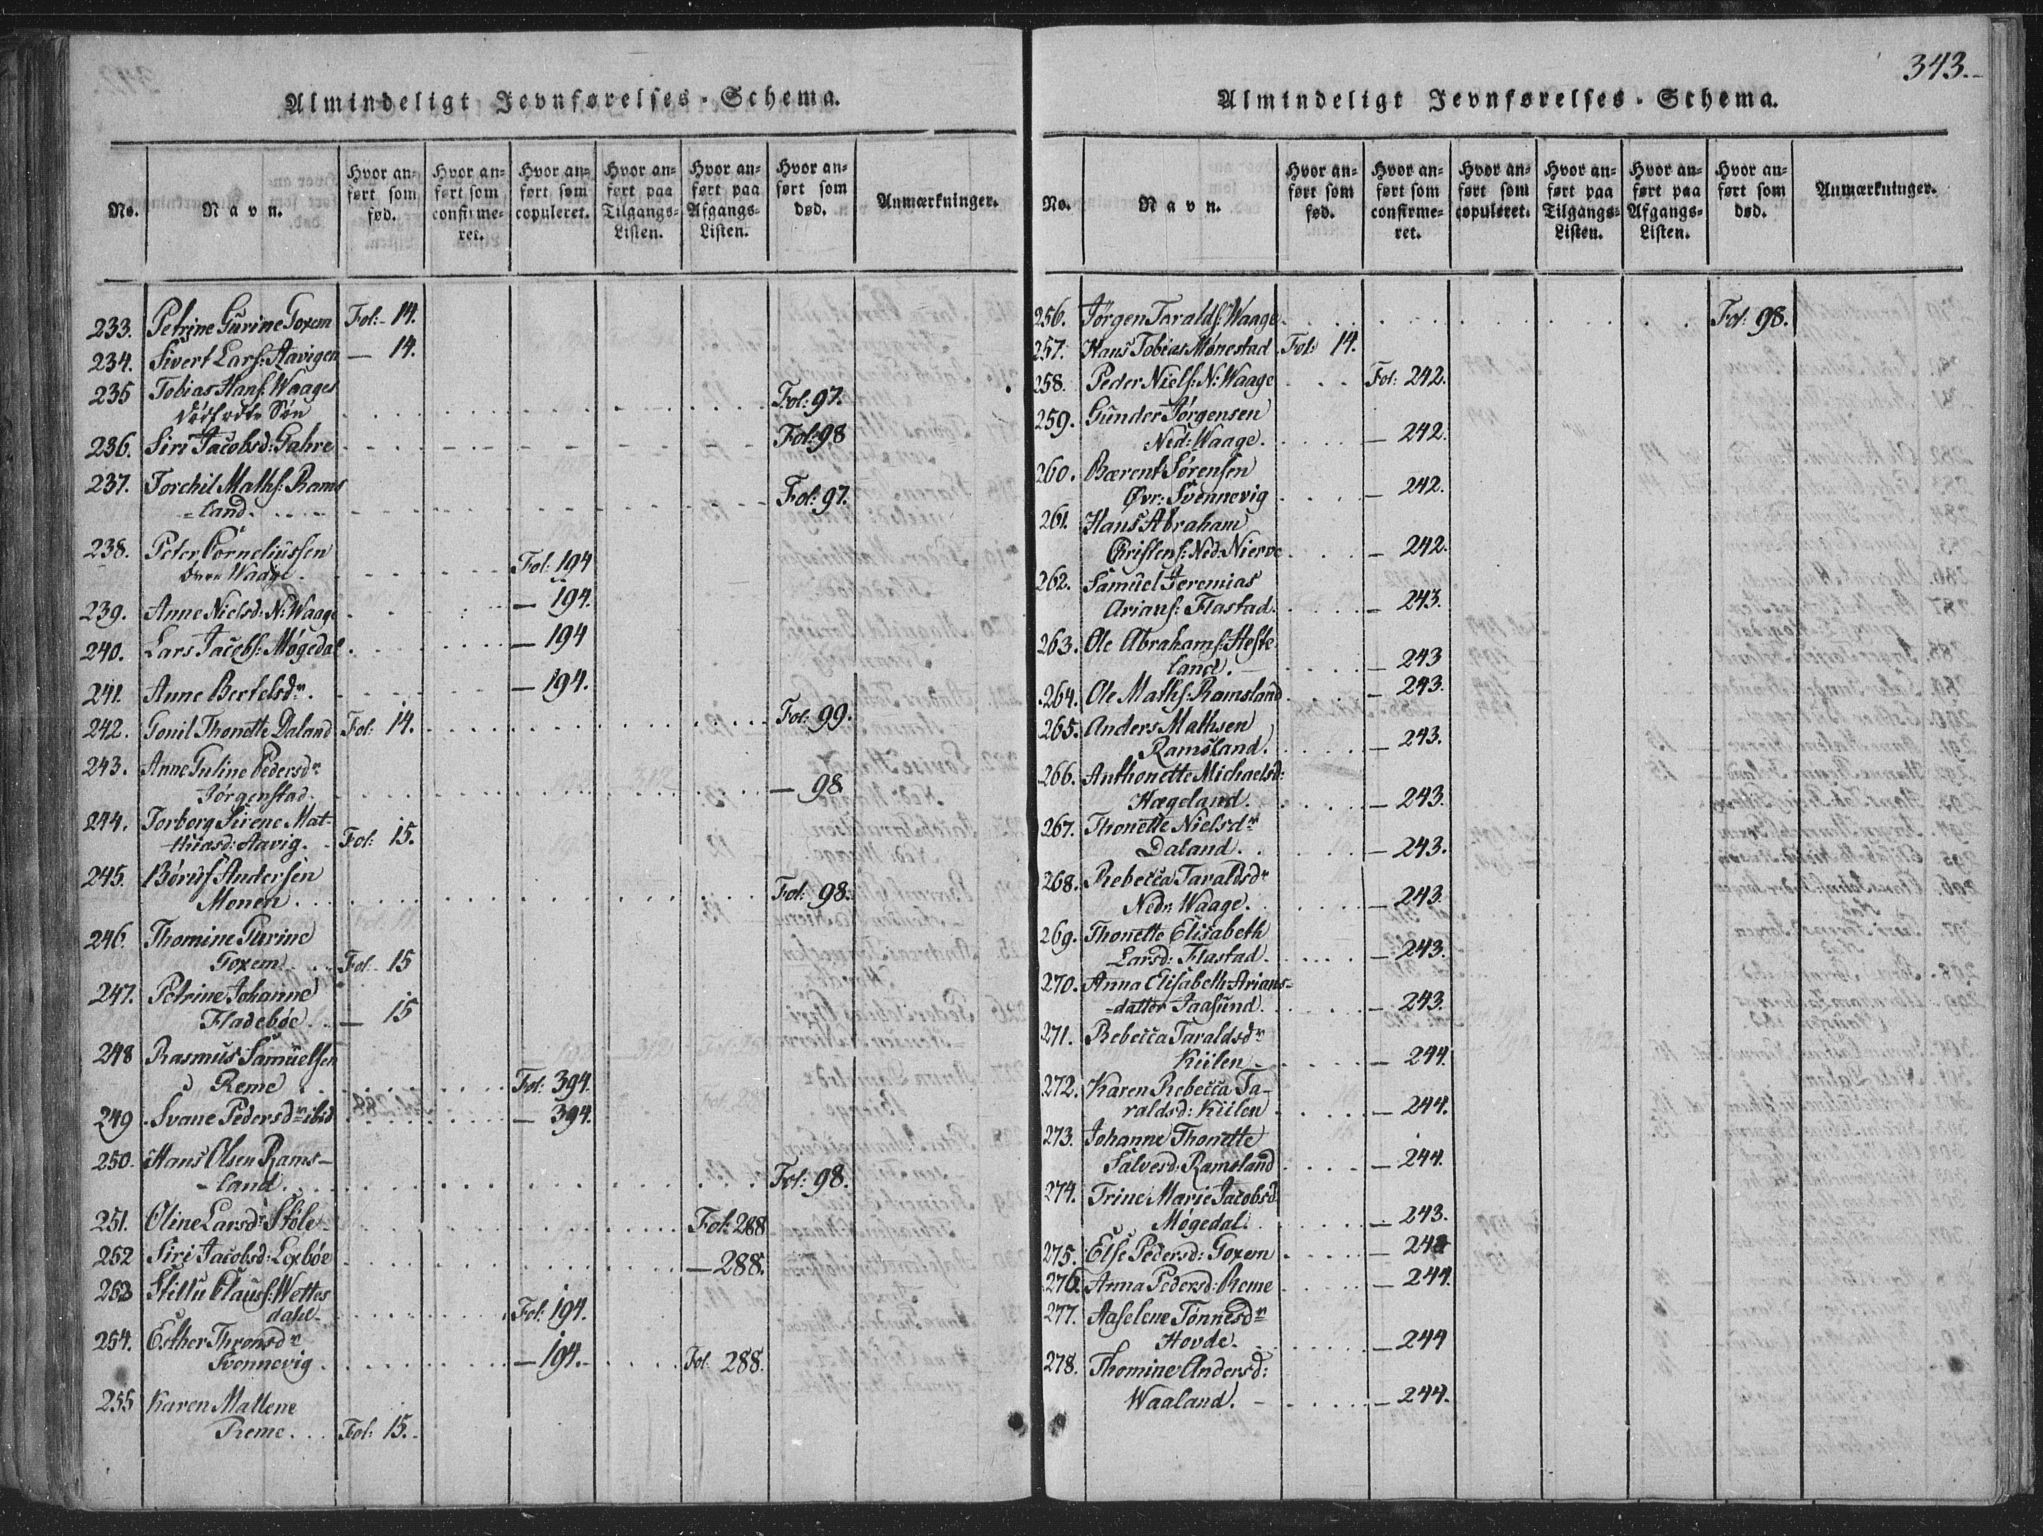 Almindeligt Jevnførelses-Schema.
No. Navn. Hvor anført som fød. Hvor anført som confirmeret. Hvor anført som copuleret. Hvor anført paa Tilgangs-Listen. Hvor anført paa Afgangs-Listen. Hvor anført som død. Anmærkninger.
233. Petrine Gurine Goxem Fol:- 14.
234. Sivert Lars: Aavigen — 14.
235 Tobias Hans: Waages
dødfødte Søn Fol: 97.
236. Siri Jacobsd: Gahre Fol: 98
237. Torchil Maths: Rams
-land. Fol: 97.
238. Peter Corneliussen
Waage. Fol: 194
239. Anne Nielsd: N: Waage — 194.
240. Lars Jacobs: Møgedal — 194
241. Anne Bertelsdr. — 194.
242. Gonil Thonette Daland Fol: 14. Fol: 99.
243. Anne Guline Pedersdr
Jørgenstad. — 98
244. Torborg Sirene Mat-
thiasd: Aavig. Fol: 15.
245. Børuf Andersen
Monen. Fol: 98.
246. Thomine Gurine
Goxem. Fol- 15
247. Petrine Johanne
Fladebøe. — 15
248 Rasmus Samuelsen
Reme Fol: 394.
249. Svane Pedersdr ibid — 394.
250. Hans Olsen Rams-
-land. Fol: 98.
251. Oline Larsdr Støle Fol: 288
252 Siri Jacobsd: Loxbøe — 288.
253 Claus: Wettes
dahl. Fol: 194.
254. Esther Thronsdr
Svennevig. — 194. Fol. 288.
255 Karen Mallene
Reme. Fol: 15.
343.
Almindeligt Jevnførelses-Schema.
No. Navn. Hvor anført som fød. Hvor anført som confirmeret. Hvor anført som copuleret. Hvor anført paa Tilgangs-Listen. Hvor anført paa Afgangs-Listen. Hvor anført som død. Anmærkninger.
256. Jørgen Taralds: Waage Fol: 98.
257. Hans Tobias Mønestad Fol: 14.
258. Peder Niels: N: Waage Fol: 242.
259. Gunder Jørgensen
Ned: Waage. — 242.
260. Bærent Sørensen
Øvr: Svennevig — 242.
261. Hans Abraham
Christens: Ned: Nierve — 242.
262. Samuel Jeremias
Arians: Flastad. — 243.
263. Ole Abrahams: Heste
land. — 243
264. Ole Maths: Ramsland — 243.
265. Anders Mathsen
Ramsland. — 243.
266. Anthonette Michaelsd:
Hægeland. — 243.
267. Thonette Nielsdr
Daland. — 243.
268. Rebecca Taraldsdr
Nedr: Waage. — 243.
269. Thonette Elisabeth
Larsd: Flastad. — 243.
270. Anna Elisabeth Arians-
-datter Jaasund. — 243.
271. Rebecca Taraldsdr
Kiilen — 244.
272. Karen Rebecca Ta-
raldsd: Kiilen — 244.
273. Johanne Thonette
Salvesd: Ramsland — 244.
274. Trine Marie Jacobsd
Møgedal. — 243.
275. Else Pedersd: Goxem
276. Anna Pedersd: Reme — 244.
277. Aaselene Tønnesdr
Hovde. — 244
278. Thomine Andersd:
Waaland. — 244.